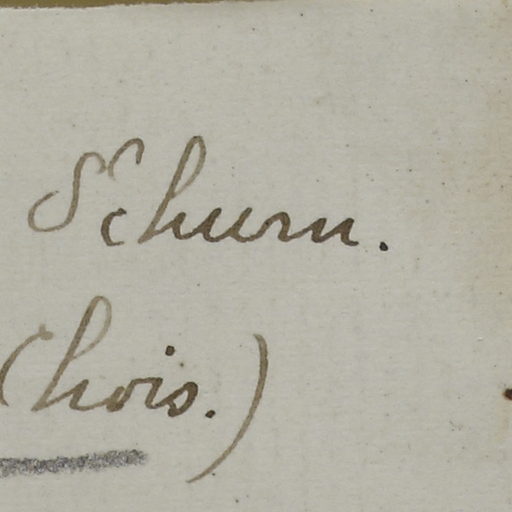 Schum.
Chois.)